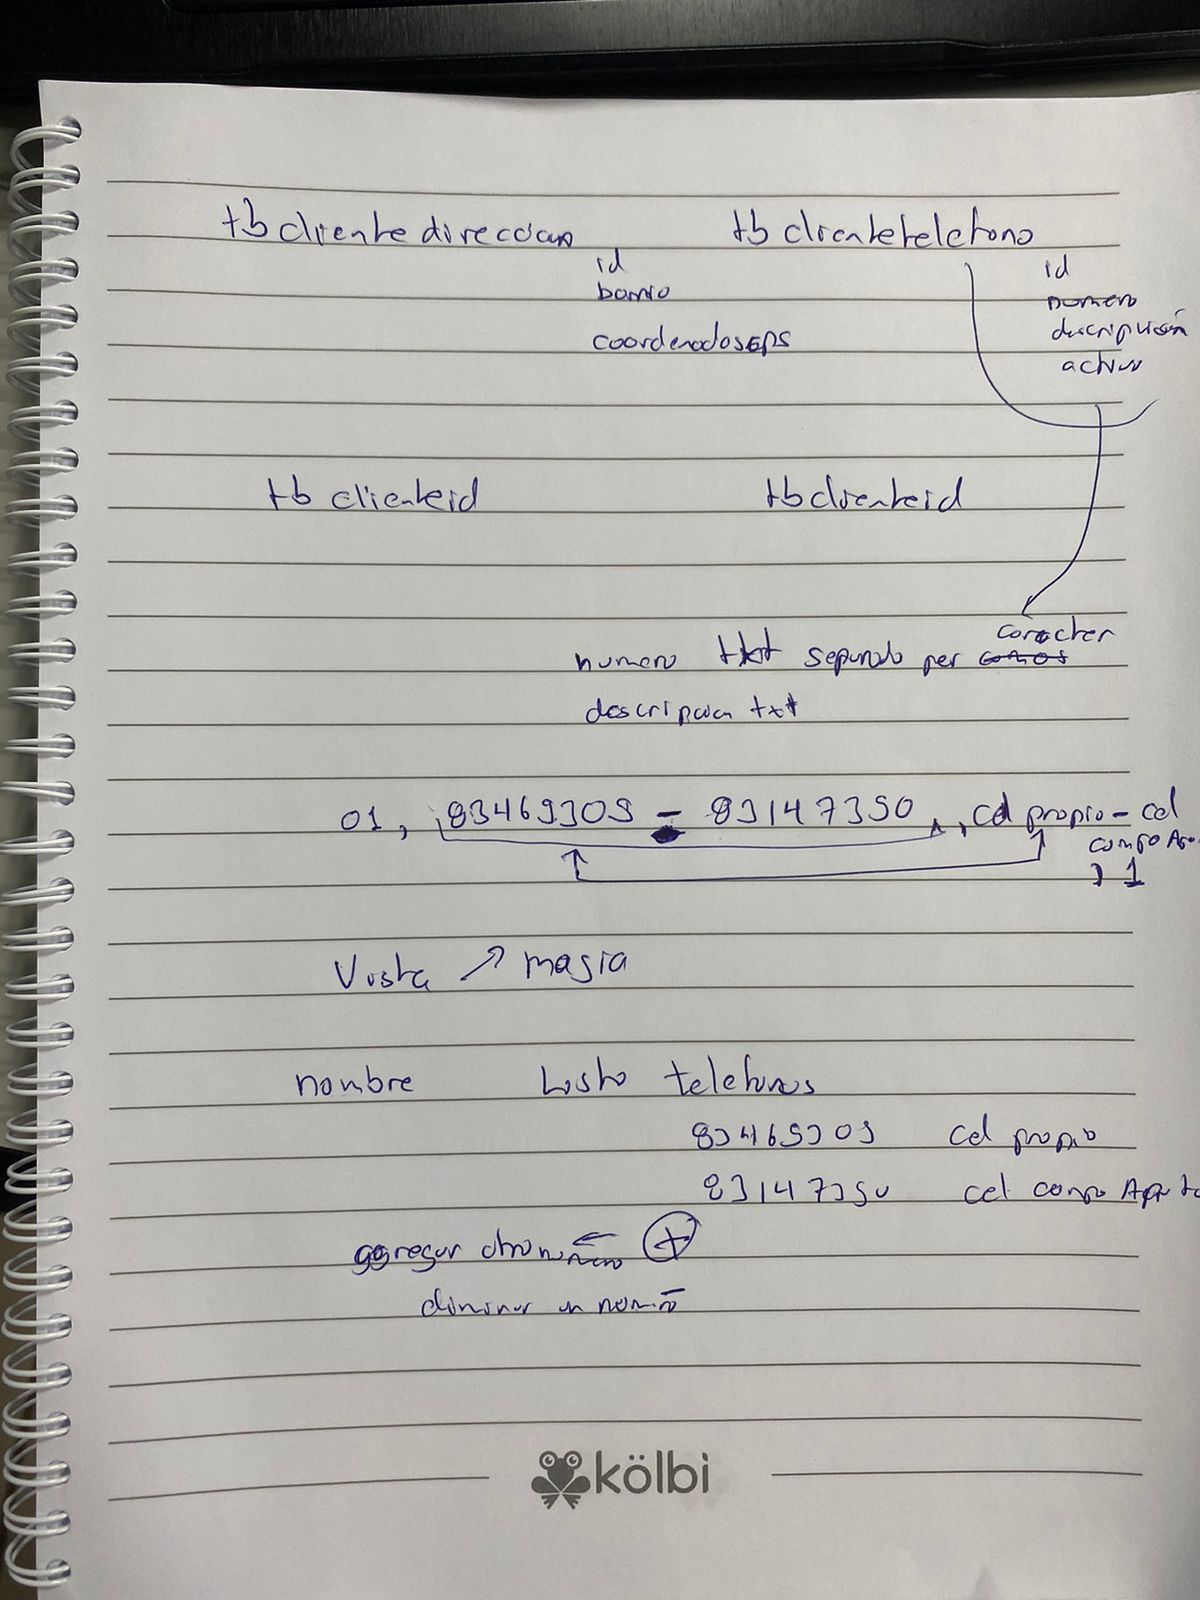 tbclientedireccion tbclientetelefono
id id
barrio numero
coordenadasGPS descripción
activo
tbclienteid tbclienteid
caracter
numero txt separado por comas
descripcion txt
01, 83469309 - 83147350, cel propio - cel
campo
, 1
Vista ↗ magia
nombre Lista telefonos
83469309 cel propio
83147350 cel campo
agregar otro numero +
eliminar un numero
kölbi